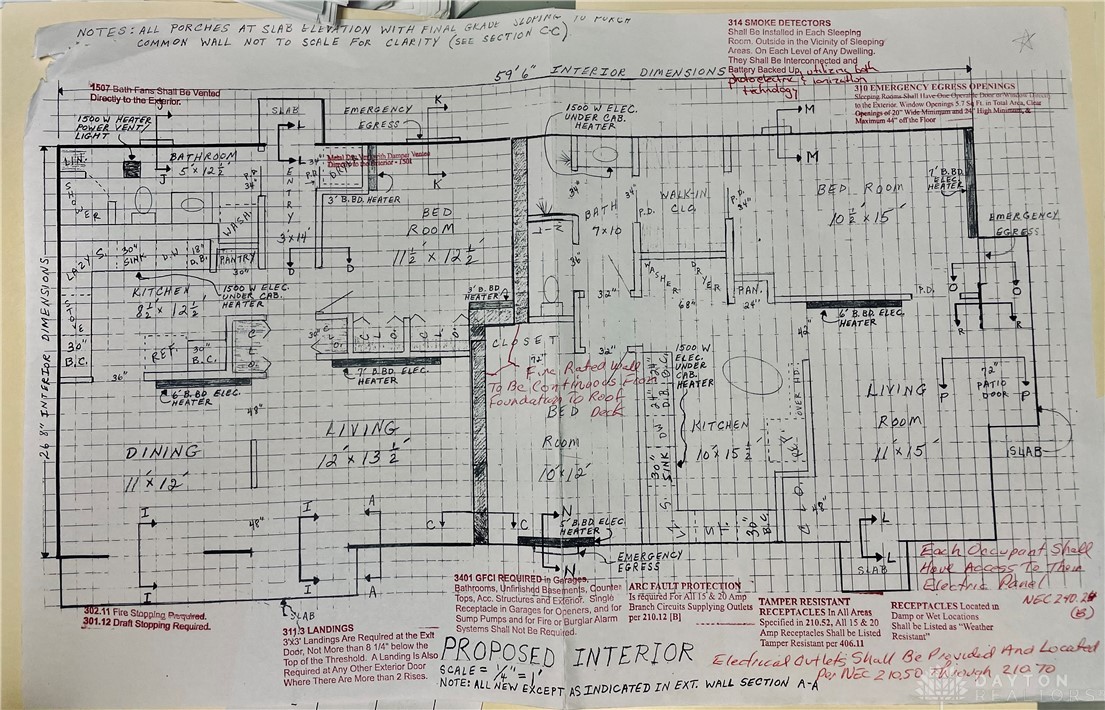 NOTES: ALL PORCHES AT SLAB ELEVATION WITH FINAL GRADE SLOPING TO PORCH
COMMON WALL NOT TO SCALE FOR CLARITY (SEE SECTION C-C)
314 SMOKE DETECTORS
Shall Be Installed in Each Sleeping
Room, Outside in the Vicinity of Sleeping
Areas, On Each Level of Any Dwelling.
They Shall Be Interconnected and
Battery Backed Up utilizing both
photoelectric & ionization
technology
59'6" INTERIOR DIMENSIONS
1507 Bath Fans Shall Be Vented
Directly to the Exterior.
310 EMERGENCY EGRESS OPENINGS
Sleeping Rooms Shall Have One Operable Door or Window
to the Exterior. Window Openings 5.7 Sq Ft. in Total Area, Clear
Openings of 20" Wide Minimum and 24" High Minimum, &
Maximum 44" off the Floor
1500 W HEATER
POWER VENT/
LIGHT
SLAB
EMERGENCY
EGRESS
K
K
1500 W ELEC.
UNDER CAB.
HEATER
M
M
L
L
LIN.
SHOWER
BATHROOM
5' x 12 1/2'
J
P.D.
34"
ENTRY
3' x 14'
34"
P.D.
DRY
Metal Dryer Vent with Damper Vented
Directly to the Exterior - 1501
3' B.BD. HEATER
BED
ROOM
11 1/2' x 12 1/2'
WASH
PANTRY
30"
D
D
LAZY S.
30"
SINK
D.W.
18"
D.B.
STOVE
30"
B.C.
KITCHEN
8 1/2' x 12 1/2'
1500 W ELEC.
UNDER CAB.
HEATER
REF.
30"
B.C.
CLO.
36"
6' B.BD ELEC.
HEATER
30"
CLO.
CLO.
7' B.BD. ELEC.
HEATER
3' B.BD
HEATER
48"
26'8" INTERIOR DIMENSIONS
DINING
11' x 12'
LIVING
12' x 13 1/2'
48"
I
I
I
I
A
A
C
C
34"
BATH
7 x 10
34"
P.D.
36"
32"
32"
WALK-IN
CLO.
P.D.
34"
WASHER
DRYER
68"
PAN.
24"
BED. ROOM
10 1/2' x 15'
7' B.BD.
ELEC.
HEATER
EMERGENCY
EGRESS
O
O
R
R
P.D.
6' B.BD. ELEC.
HEATER
42"
CLOSET
72"
Fire Rated Wall
To Be Continuous From
Foundation To Roof
Deck
BED
ROOM
10' x 12'
1500 W
ELEC.
UNDER
CAB.
HEATER
24"
24"
B.C.
D.B.
DW
SINK
30"
KITCHEN
10' x 15 1/2'
OVER HD.
S.
ST.
30"
B.C.
CLO.
48"
LIVING
ROOM
11' x 15'
72"
PATIO
DOOR
P
P
SLAB
N
N
5' B.BD. ELEC.
HEATER
EMERGENCY
EGRESS
L
L
SLAB
Each Occupant Shall
Have Access To Their
Electric Panel
NEC 240.24
(B)
302.11 Fire Stopping Required.
301.12 Draft Stopping Required.
SLAB
311.3 LANDINGS
3'x3' Landings Are Required at the Exit
Door, Not More than 8 1/4" below the
Top of the Threshold. A Landing Is Also
Required at Any Other Exterior Door
Where There Are More than 2 Rises.
3401 GFCI REQUIRED in Garages,
Bathrooms, Unfinished Basements, Counter
Tops, Acc. Structures and Exterior. Single
Receptacle in Garages for Openers, and for
Sump Pumps and for Fire or Burglar Alarm
Systems Shall Not Be Required.
ARC FAULT PROTECTION
Is Required For All 15 & 20 Amp
Branch Circuits Supplying Outlets
per 210.12 [B]
TAMPER RESISTANT
RECEPTACLES In All Areas
Specified in 210.52, All 15 & 20
Amp Receptacles Shall Be Listed
Tamper Resistant per 406.11
RECEPTACLES Located in
Damp or Wet Locations
Shall be Listed as "Weather
Resistant"
PROPOSED INTERIOR
SCALE = 1/4" = 1'
NOTE: ALL NEW EXCEPT AS INDICATED IN EXT. WALL SECTION A-A
Electrical Outlets Shall Be Provided And Located
Per NEC 210.50 Through 210.70
DAYTON
REALTORS